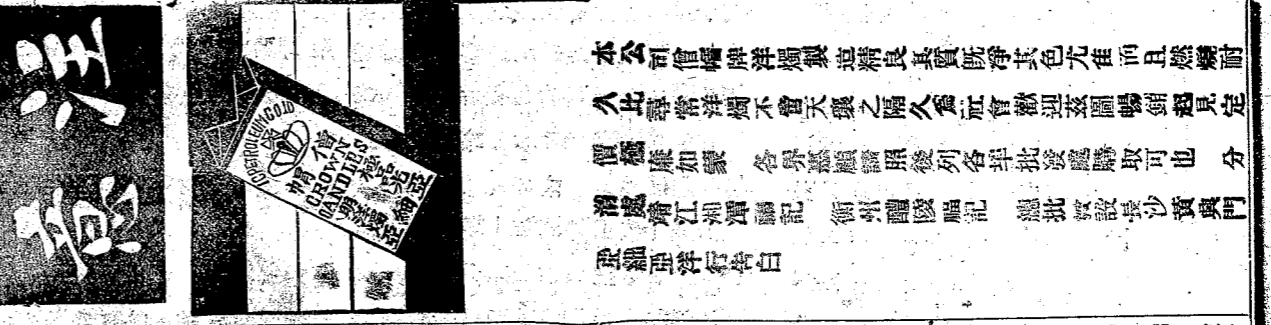 洋燭
PETROLEUM CO LTD
僧帽
CROWN
CANDLES
本公司僧帽牌洋燭製造精良其質既淨其色尤佳而且燃燒耐
久比尋常洋燭不啻天壤之隔久爲社會歡迎茲圖暢銷起見定
價極廉如蒙 各界惠顧請照後列各埠批發處購取可也 分
消處靖江湘潭 記 衡州醴陵福記 總批發設長沙黃興門
亞細亞洋行告白